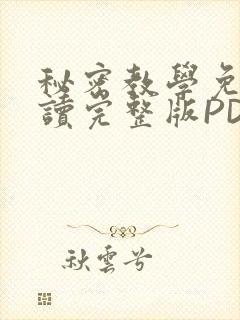 秘密教學免
讀完整版PD
秋雲兮